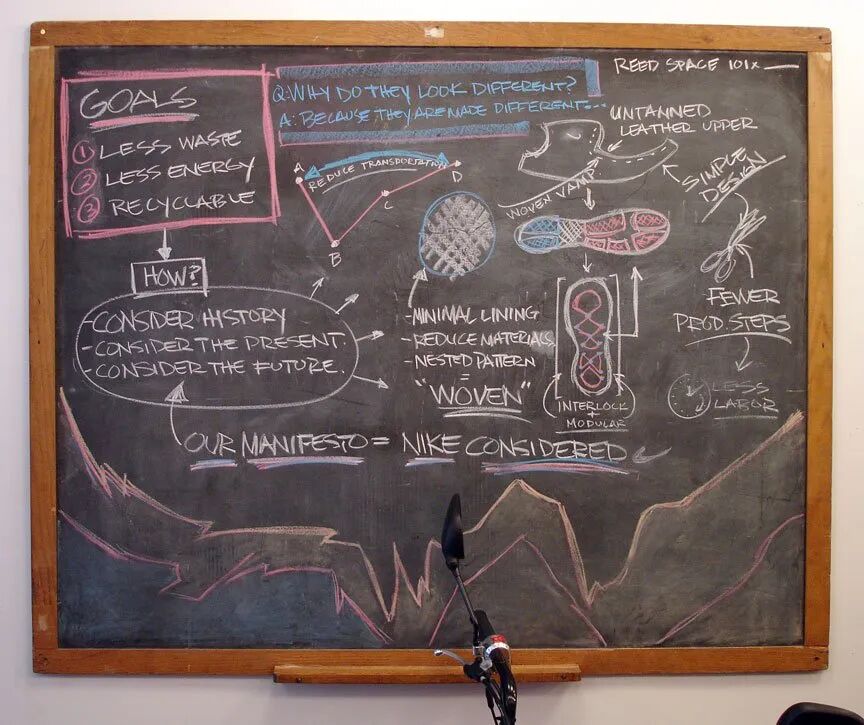 GOALS
① LESS WASTE
② LESS ENERGY
③ RECYCLABLE
HOW?
-CONSIDER HISTORY
-CONSIDER THE PRESENT.
-CONSIDER THE FUTURE.
OUR MANIFESTO = NIKE CONSIDERED
Q: WHY DO THEY LOOK DIFFERENT?
A: BECAUSE THEY ARE MADE DIFFERENT...
A
REDUCE TRANSPORTATION
D
C
B
-MINIMAL LINING
-REDUCE MATERIALS.
-NESTED PATTERN
=
"WOVEN"
REED SPACE 101x
UNTANNED
LEATHER UPPER
WOVEN VAMP
INTERLOCK
+
MODULAR
SIMPLE
DESIGN
FEWER
PROD. STEPS
LESS
LABOR